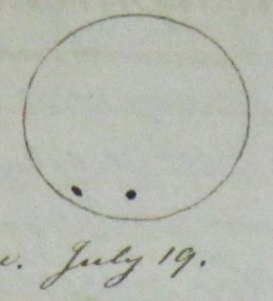 July 19.